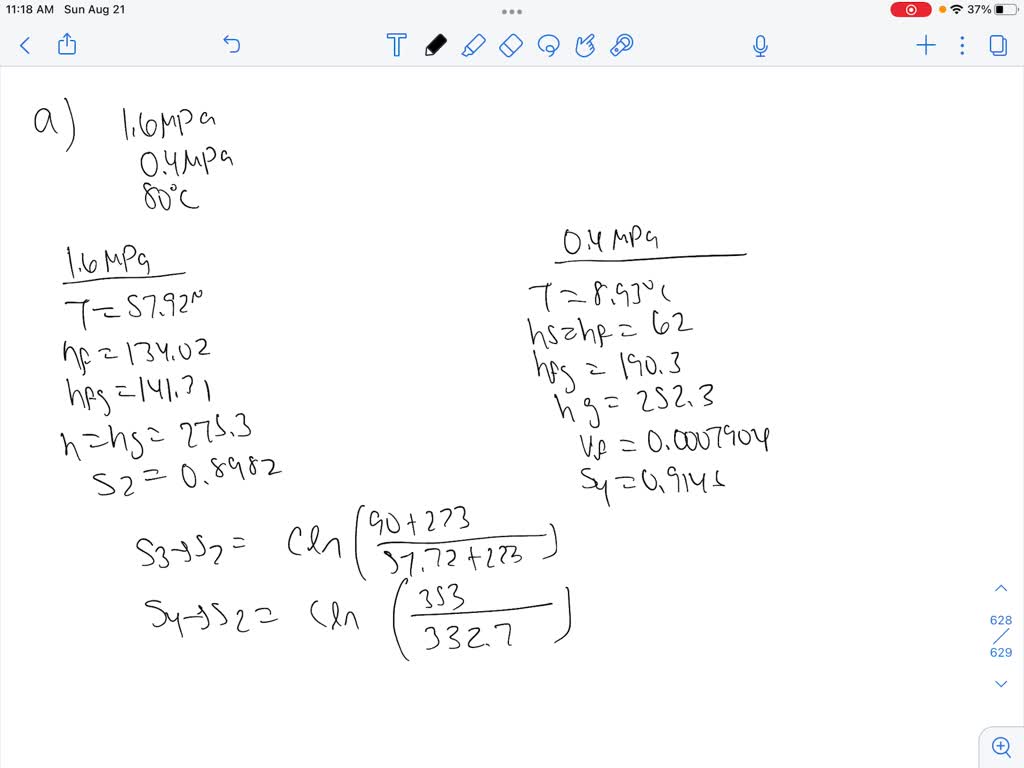 11:18 AM Sun Aug 21
37%
a) 1.6MPa
0.4MPa
80°C
1.6 MPa
T = 57.92
hf = 134.02
hfg = 141.31
h = hg = 275.3
S2 = 0.8982
0.4 MPa
T = 8.93°C
hs = hf = 62
hfg = 190.3
hg = 252.3
Vf = 0.0007904
S4 = 0.9145
S3→S2 = C ln (90+273 / 57.72+273)
S4→S2 = C ln (353 / 332.7)
628
629